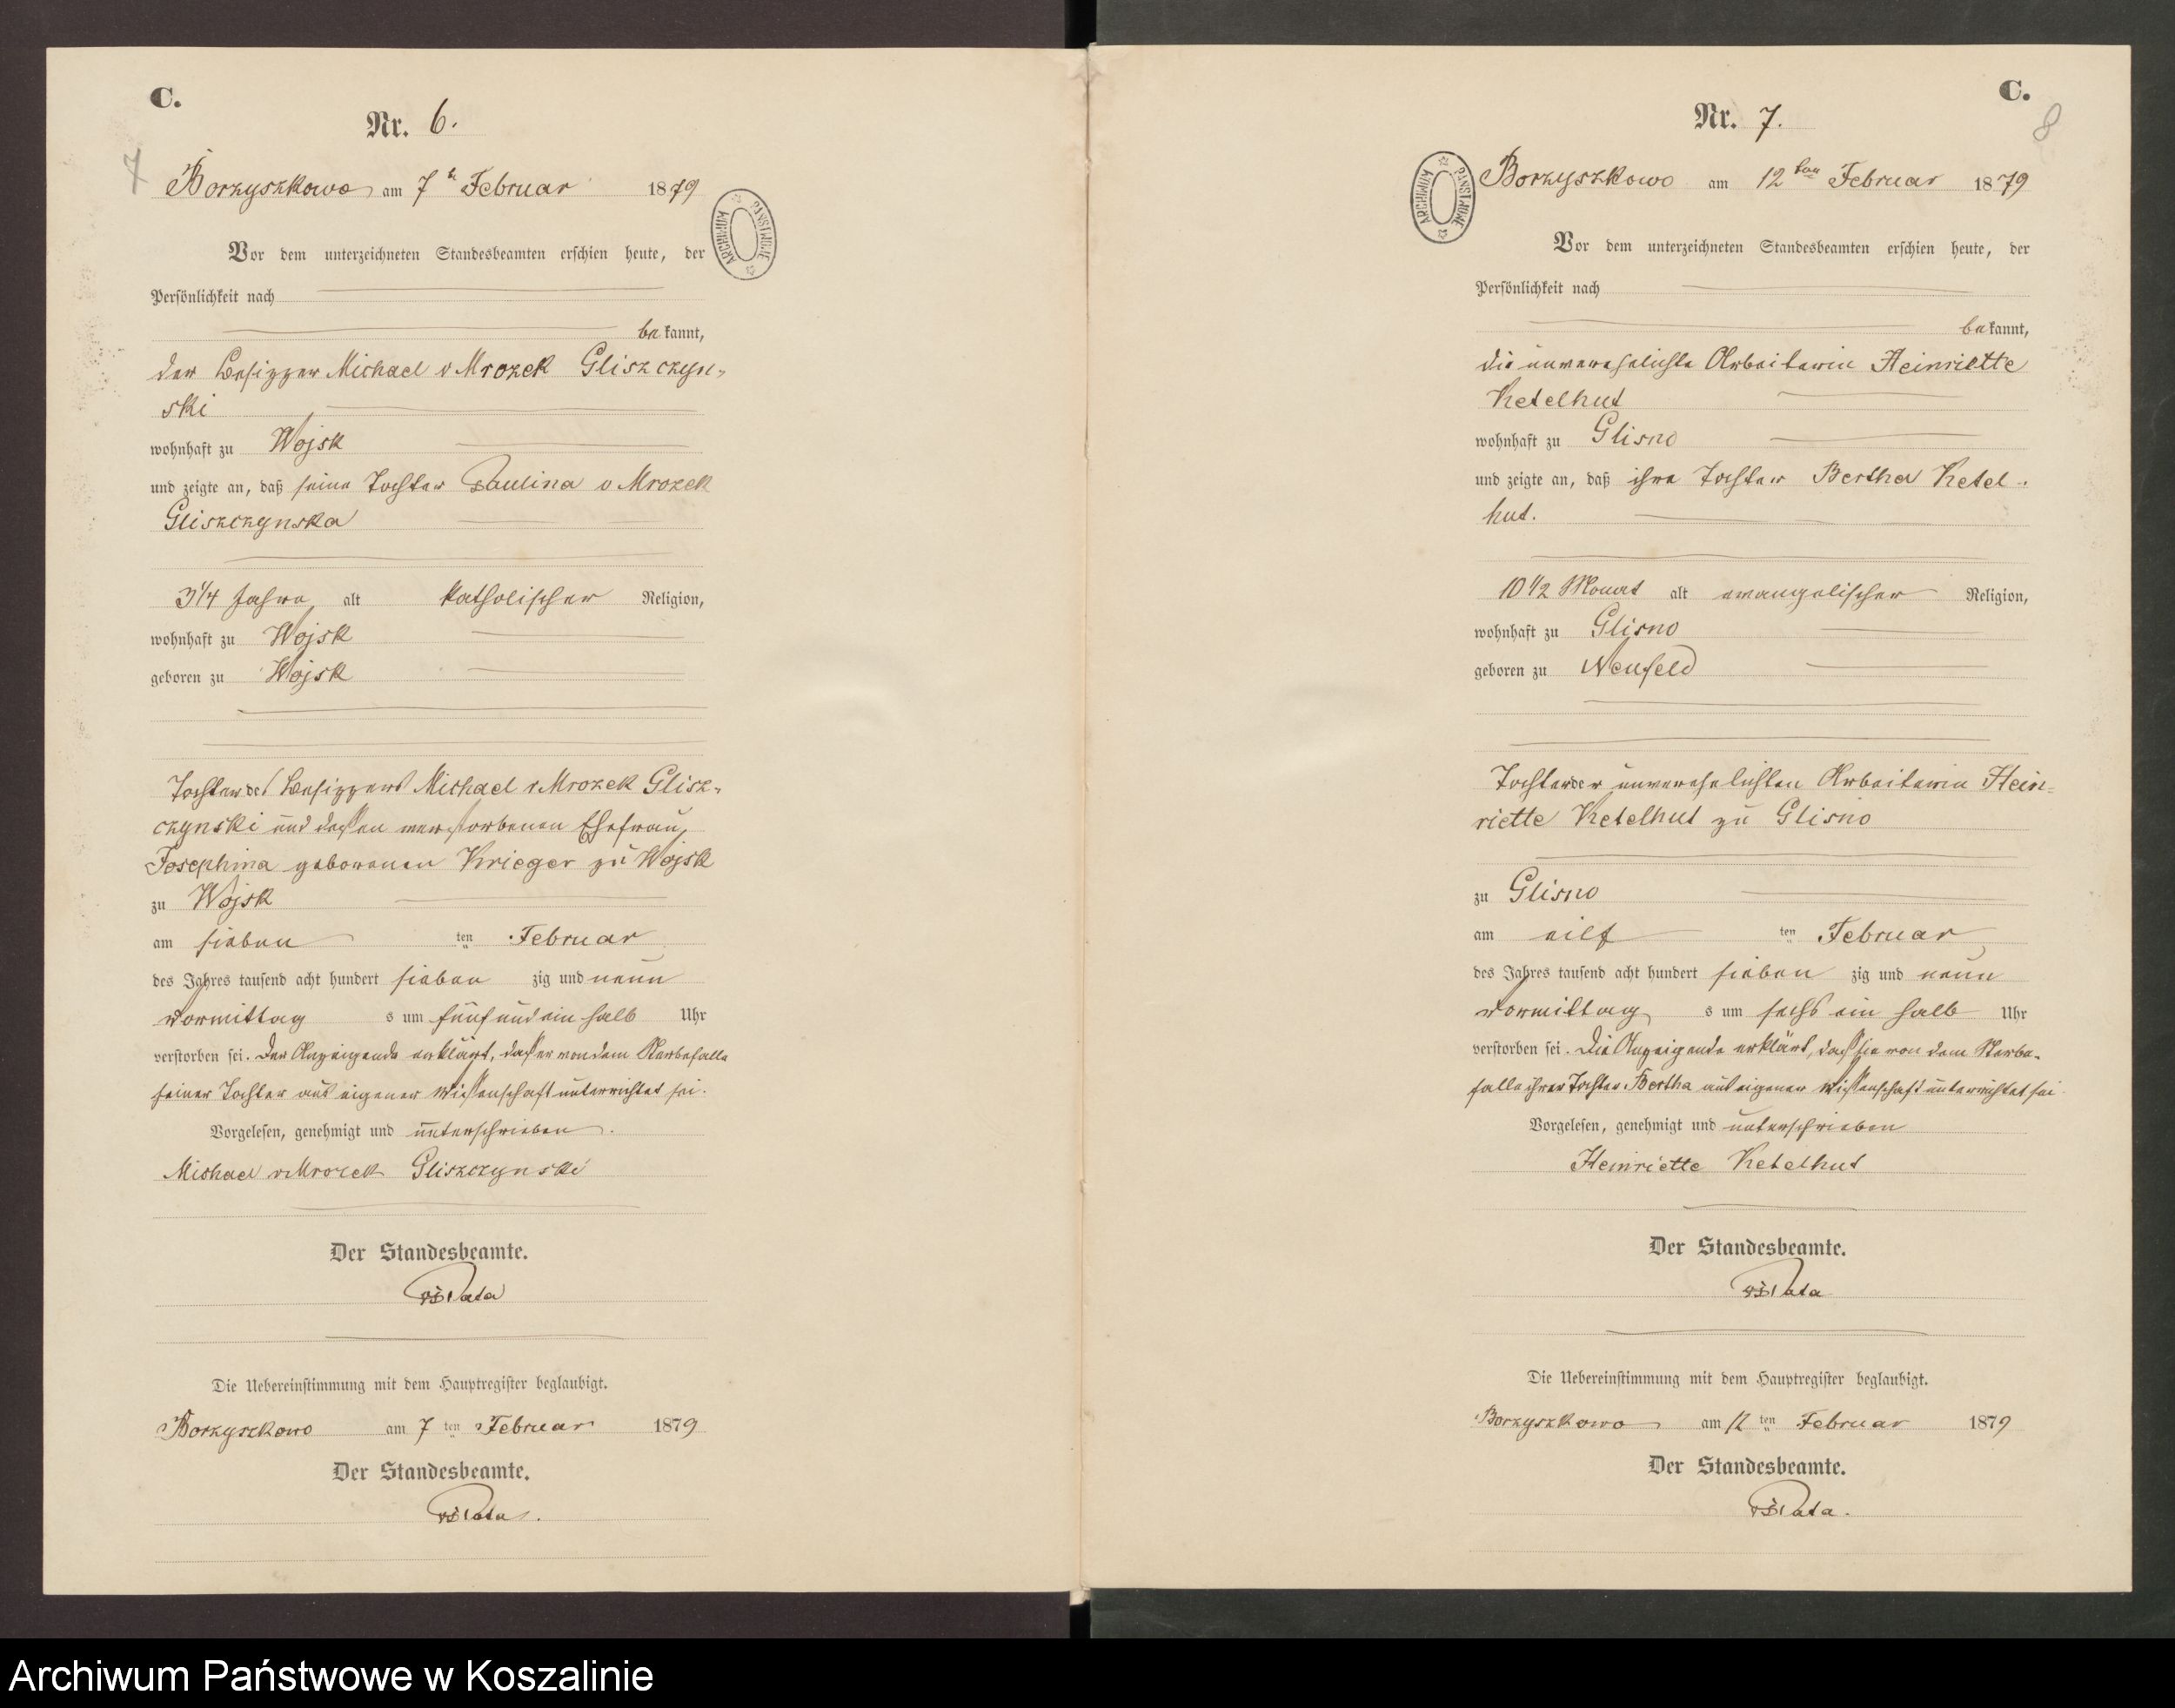 C.
Nr. 6.
7
Borzyszkowo am 7t Februar 1879
ARCHIWUM PAŃSTWOWE
Vor dem unterzeichneten Standesbeamten erschien heute, der
Persönlichkeit nach
be kannt,
der Besitzer Michael v Mrozek Gliszczyn-
ski
wohnhaft zu Wojsk
und zeigte an, daß seine Tochter Paulina v Mrozek
Gliszczynska
3 1/4 Jahre alt katholischer Religion,
wohnhaft zu Wojsk
geboren zu Wojsk
Tochter des Besitzers Michael v Mrozek Glisz-
czynski und dessen verstorbenen Ehefrau,
Josephina geborenen Krieger zu Wojsk
zu Wojsk
am sieben ten Februar
des Jahres tausend acht hundert sieben zig und neun
Vormittag s um fünf und ein halb Uhr
verstorben sei. Der Anzeigende erklärt, dass er von dem Sterbefalle
seiner Tochter aus eigener Wissenschaft unterrichtet sei.
Vorgelesen, genehmigt und unterschrieben.
Michael v Mrozek Gliszczynski
Der Standesbeamte.
Die Uebereinstimmung mit dem Hauptregister beglaubigt.
Borzyszkowo am 7 ten Februar 1879
Der Standesbeamte.
C.
Nr. 7.
8
Borzyszkowo am 12ten Februar 1879
ARCHIWUM PAŃSTWOWE
Vor dem unterzeichneten Standesbeamten erschien heute, der
Persönlichkeit nach
be kannt,
die unverehelichte Arbeiterin Heinriette
Ketelhut
wohnhaft zu Glisno
und zeigte an, daß ihre Tochter Bertha Ketel-
hut.
10 1/2 Monat alt evangelischer Religion,
wohnhaft zu Glisno
geboren zu Neufeld
Tochter der unverehelichten Arbeiterin Hein-
riette Ketelhut zu Glisno
zu Glisno
am eilf ten Februar
des Jahres tausend acht hundert sieben zig und neun
Vormittag s um sechs ein halb Uhr
verstorben sei. Die Anzeigende erklärt, dass sie von dem Sterbe-
falle ihrer Tochter Bertha aus eigener Wissenschaft unterrichtet sei.
Vorgelesen, genehmigt und unterschrieben
Heinriette Ketelhut
Der Standesbeamte.
Die Uebereinstimmung mit dem Hauptregister beglaubigt.
Borzyszkowo am 12 ten Februar 1879
Der Standesbeamte.
Archiwum Państwowe w Koszalinie